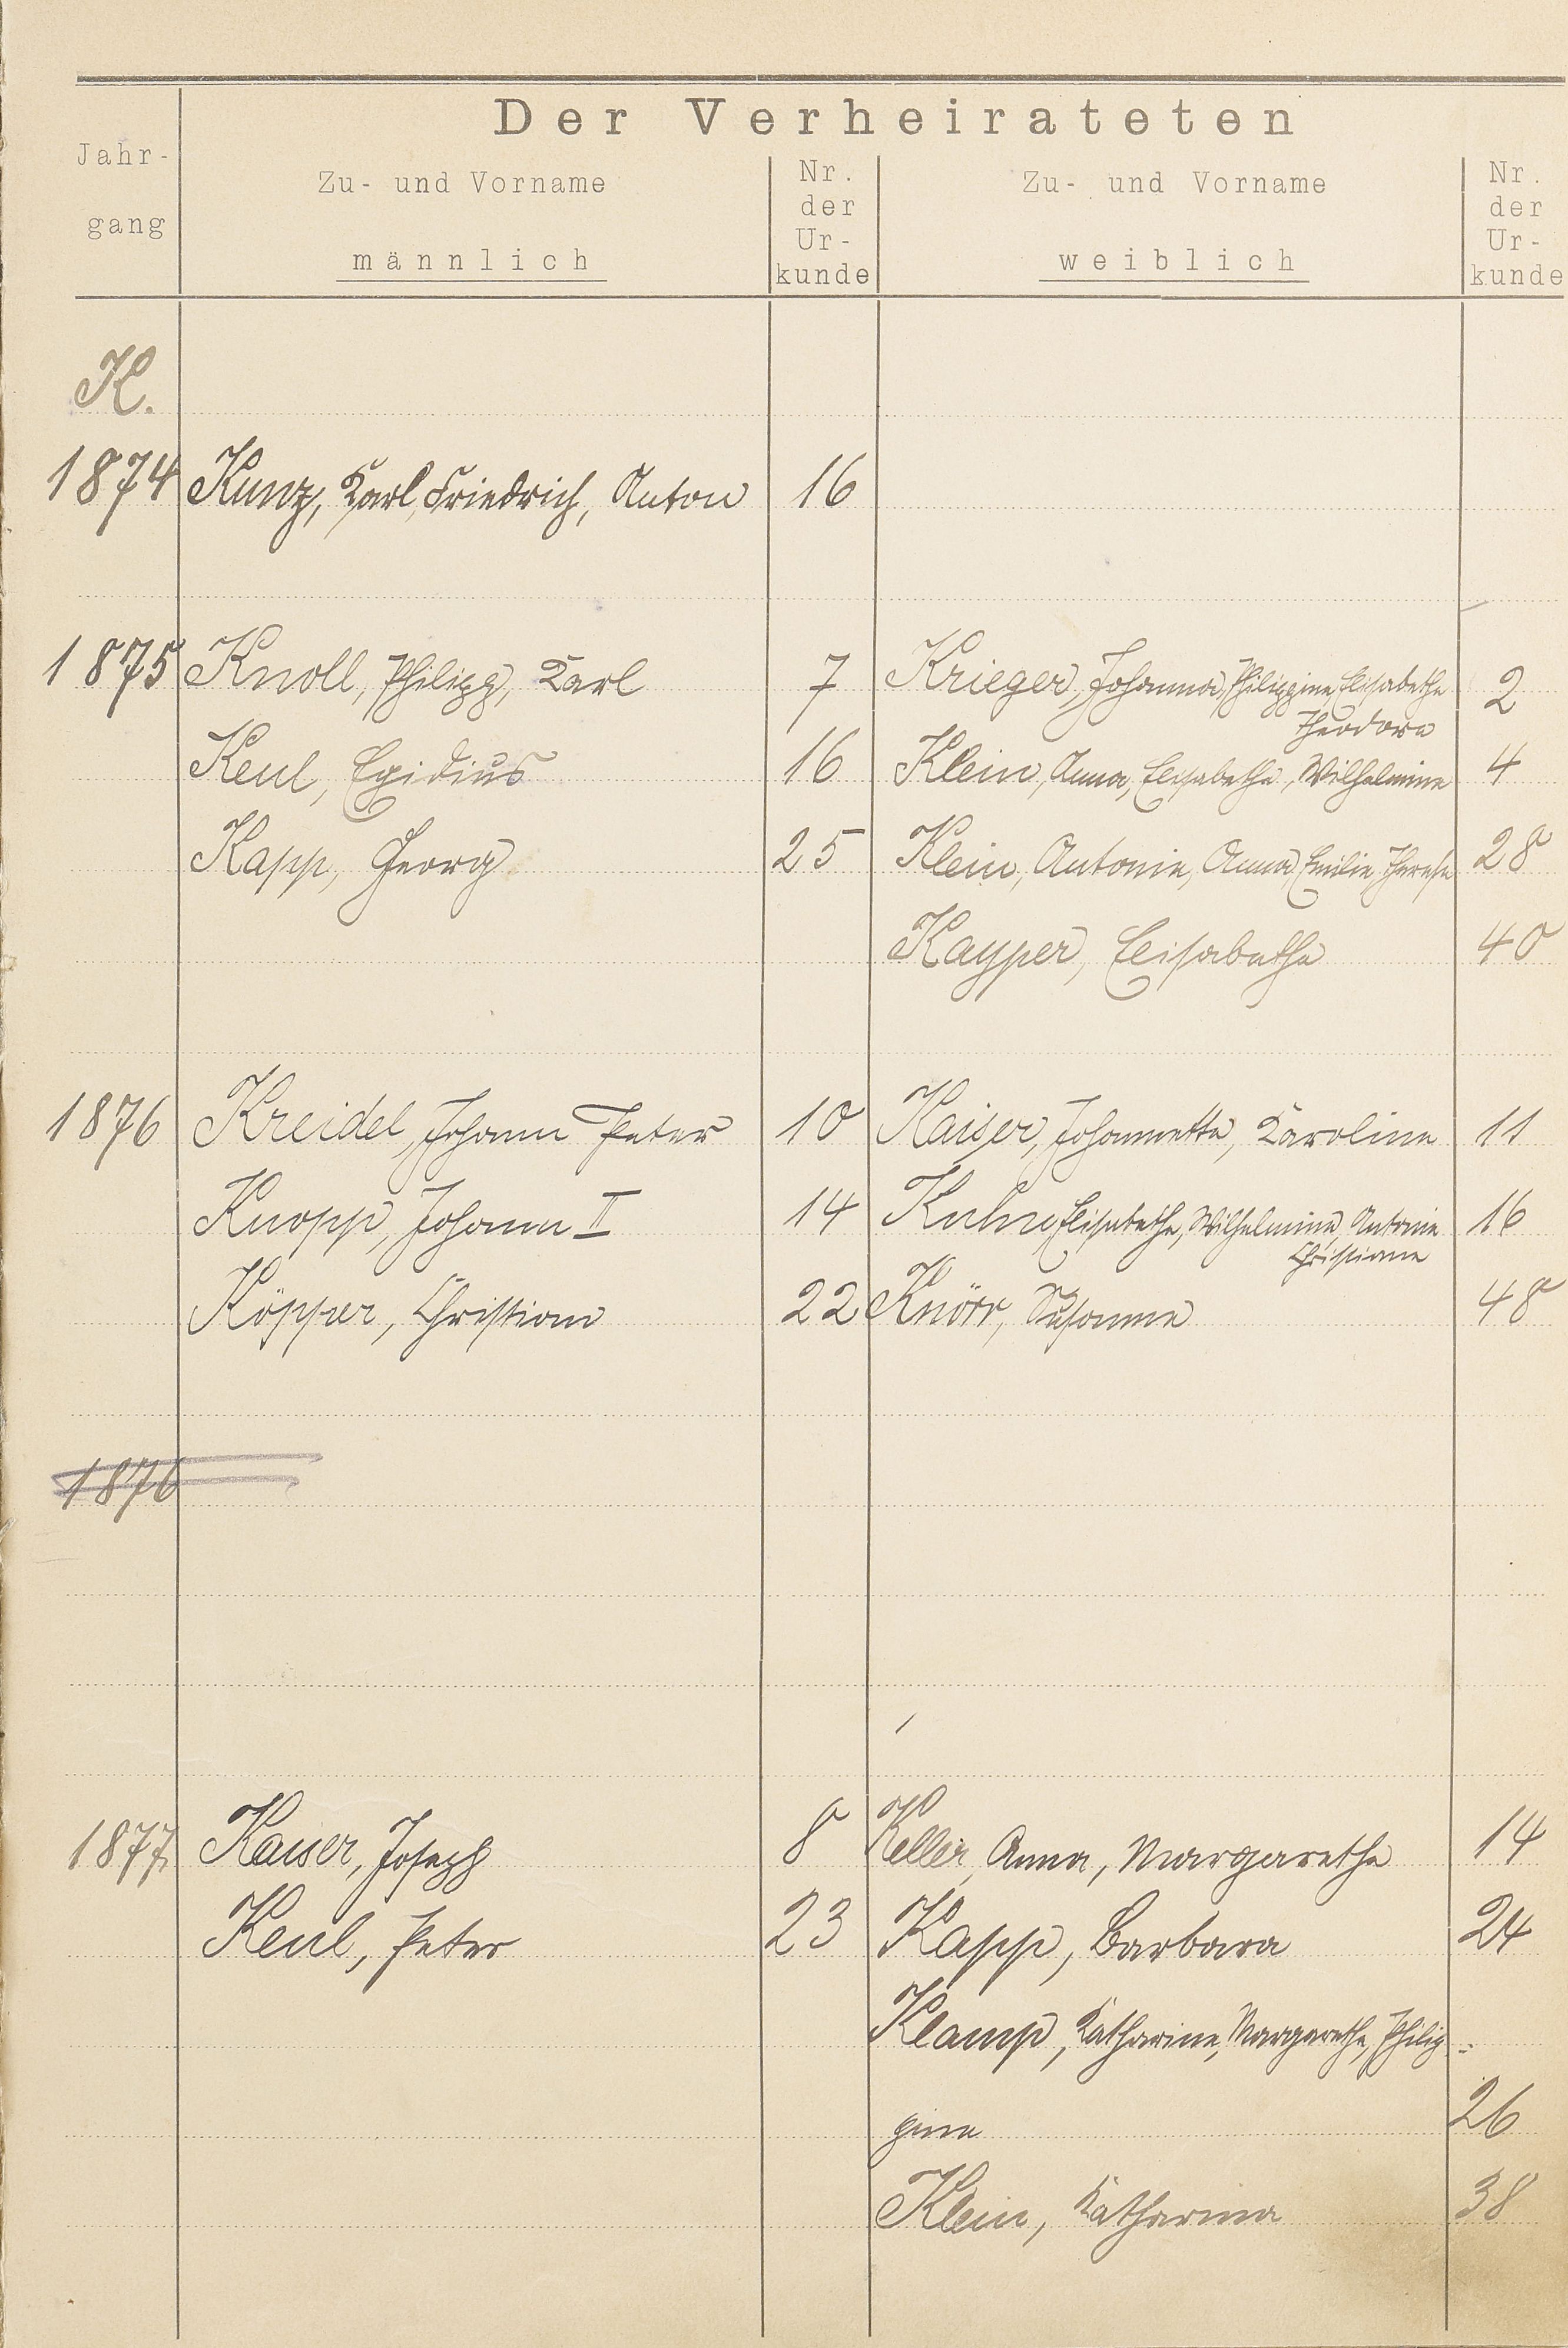 Der Verheirateten
Jahr-
gang
Zu- und Vorname
männlich
Nr.
der
Ur-
kunde
Zu- und Vorname
weiblich
Nr.
der
Ur-
kunde
K.
1874 Kunz, Karl, Friedrich, Anton 16
1875 Knoll, Philipp, Karl 7 Krieger, Johanna, Philippine, Elisabethe 2
Theodora
Keul, Egidius 16 Klein, Anna, Elisabethe, Wilhelmine 4
Kapp, Georg 25 Klein, Antonie, Anna, Emilie, Therese 28
Kayper, Elisabethe 40
1876 Kreidel, Johann Peter 10 Kaiser, Johannette, Karoline 11
Knopp, Johann II 14 Kuhn, Elisabethe, Wilhelmine, Antonie 16
Christiane
Köpper, Christian 22 Knörr, Susanne 48
1876
1877 Kaiser, Joseph 8 Keller, Anna, Margarethe 14
Keul, Peter 23 Kapp, Barbara 24
Klamp, Katharine, Margarethe, Philip=
pine 26
Klein, Katharina 38